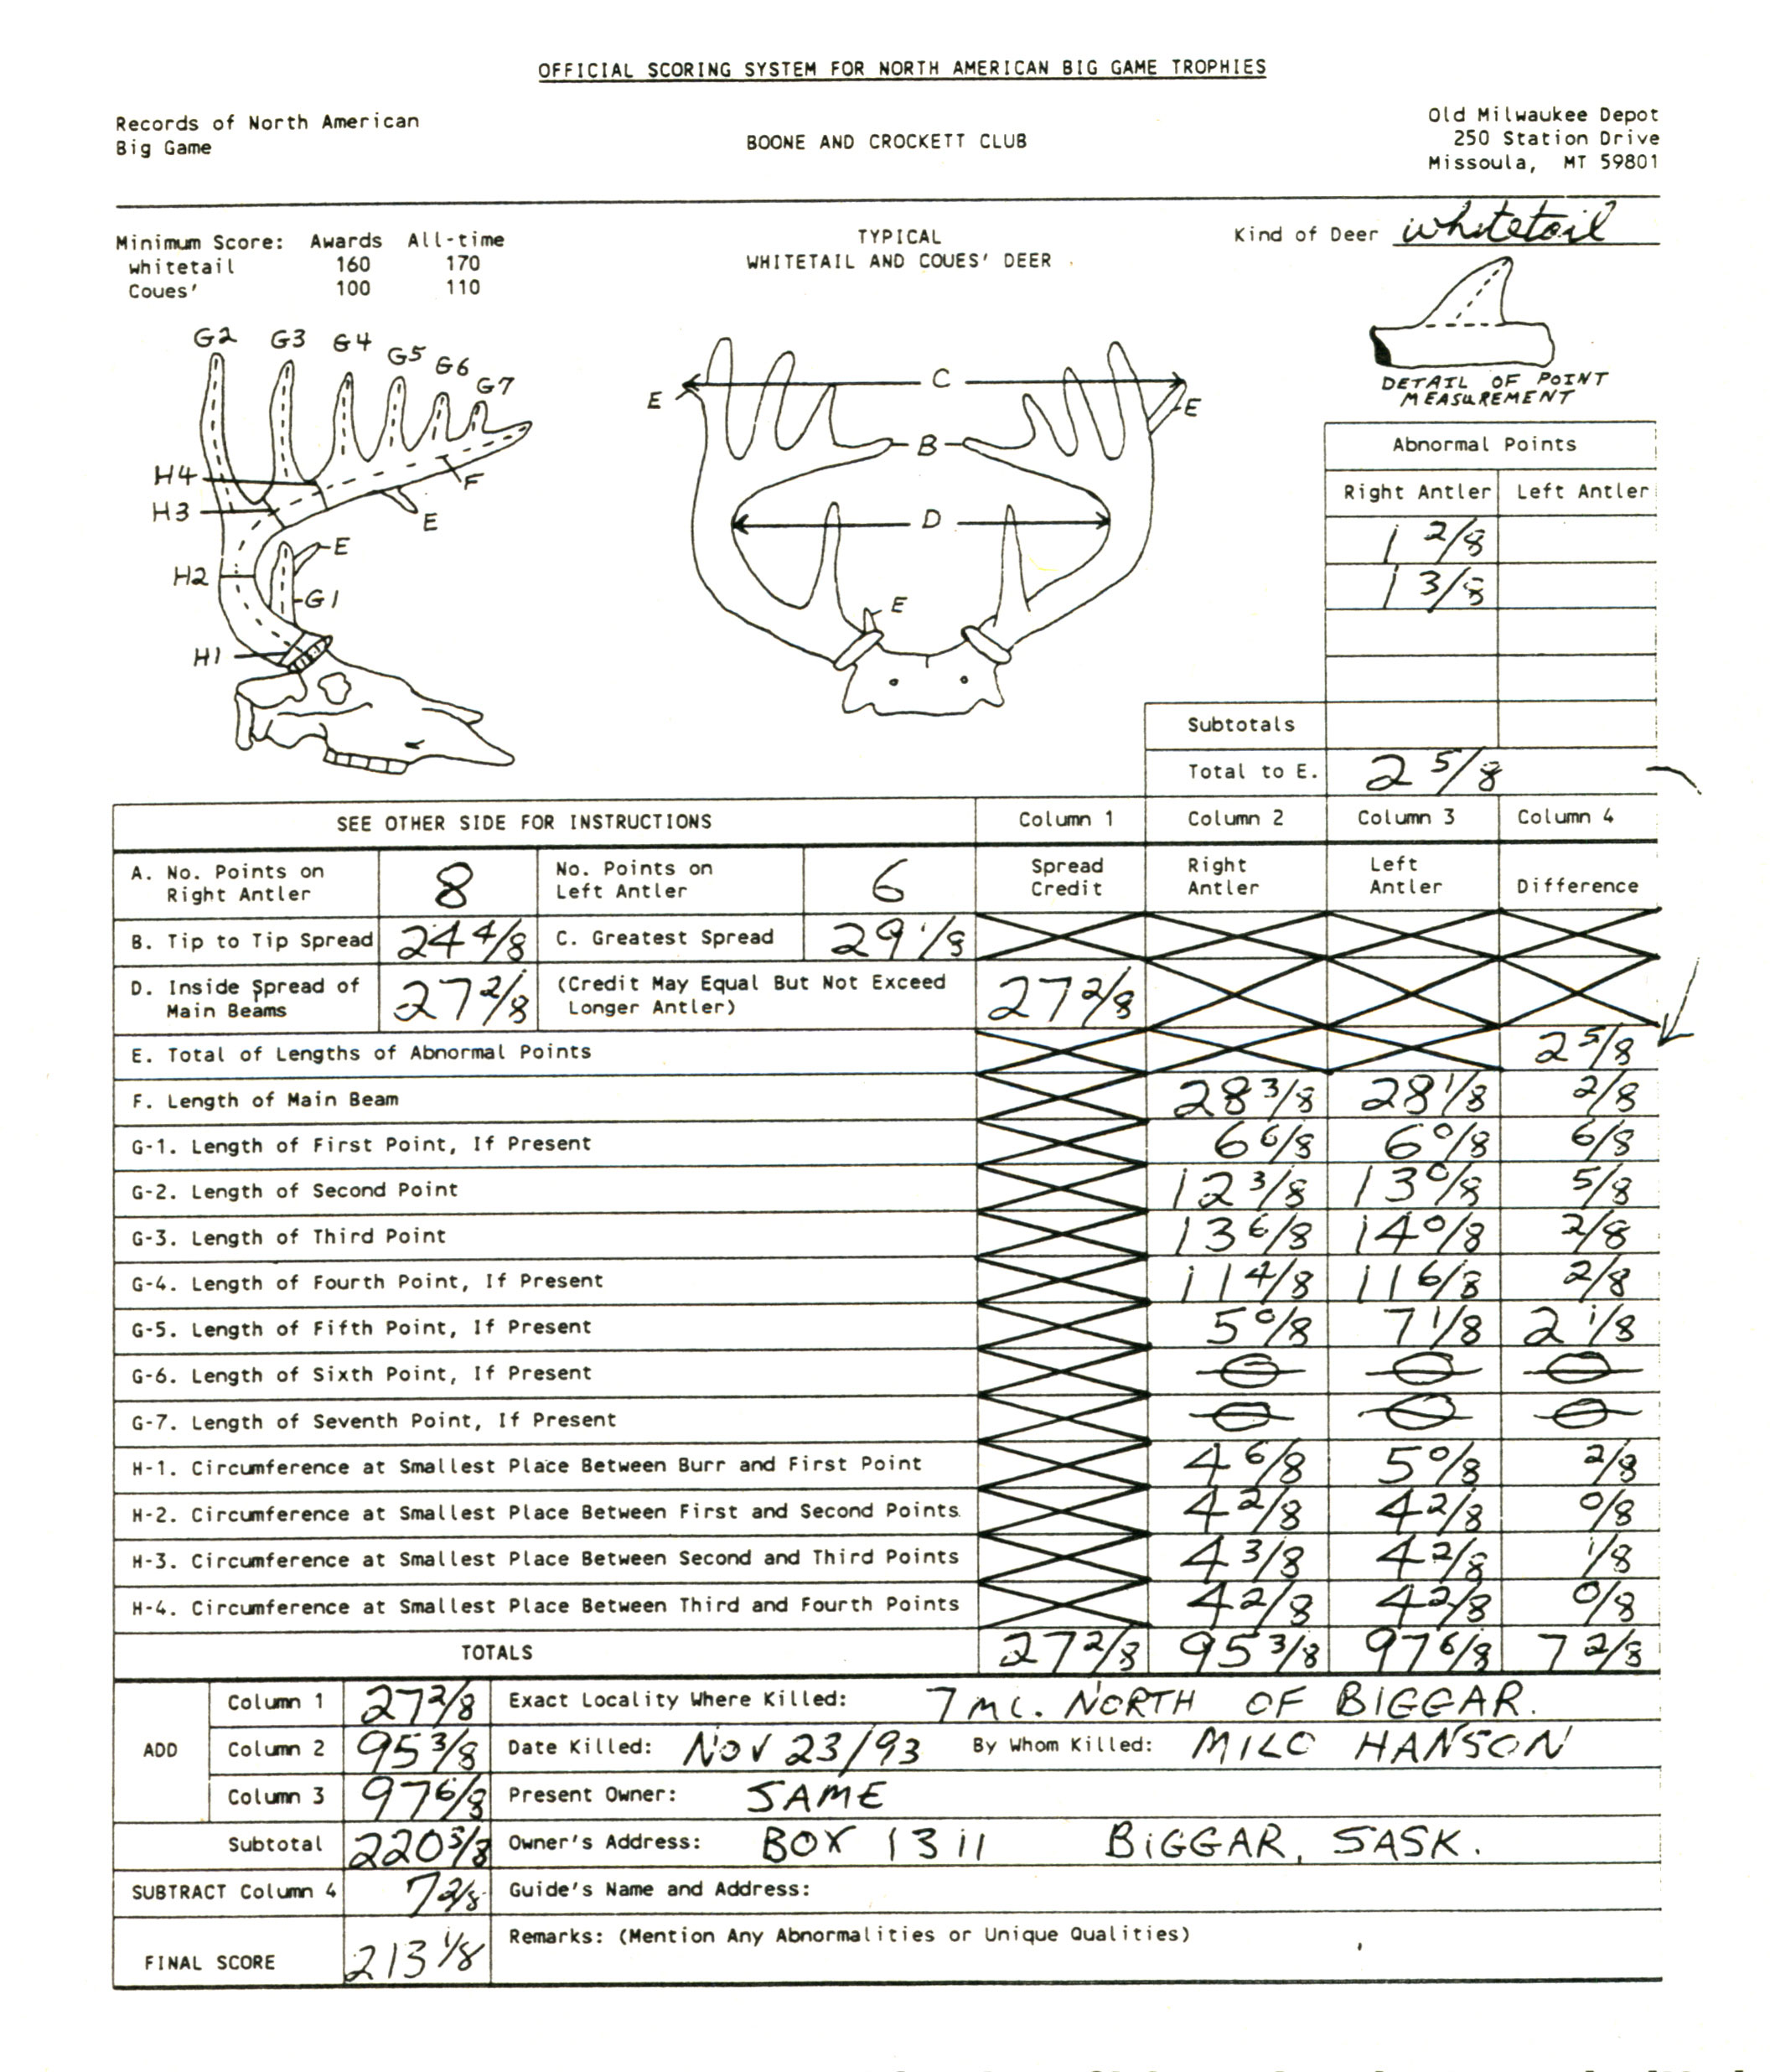 OFFICIAL SCORING SYSTEM FOR NORTH AMERICAN BIG GAME TROPHIES
Records of North American
Big Game
BOONE AND CROCKETT CLUB
Old Milwaukee Depot
250 Station Drive
Missoula, MT 59801
Minimum Score: Awards All-time
whitetail 160 170
Coues' 100 110
TYPICAL
WHITETAIL AND COUES' DEER
Kind of Deer whitetail
G2 G3 G4 G5 G6 G7
H4
H3
F
E
E
H2
G1
H1
C
E
E
B
D
E
DETAIL OF POINT
MEASUREMENT
Abnormal Points
Right Antler Left Antler
1 2/8
1 3/8
Subtotals
Total to E. 2 5/8
SEE OTHER SIDE FOR INSTRUCTIONS Column 1 Column 2 Column 3 Column 4
A. No. Points on Right Antler 8 No. Points on Left Antler 6 Spread Credit Right Antler Left Antler Difference
B. Tip to Tip Spread 24 4/8 C. Greatest Spread 29 1/8
D. Inside Spread of Main Beams 27 2/8 (Credit May Equal But Not Exceed Longer Antler) 27 2/8
E. Total of Lengths of Abnormal Points 2 5/8
F. Length of Main Beam 28 3/8 28 1/8 2/8
G-1. Length of First Point, If Present 6 6/8 6 0/8 6/8
G-2. Length of Second Point 12 3/8 13 0/8 5/8
G-3. Length of Third Point 13 6/8 14 0/8 2/8
G-4. Length of Fourth Point, If Present 11 4/8 11 6/8 2/8
G-5. Length of Fifth Point, If Present 5 0/8 7 1/8 2 1/8
G-6. Length of Sixth Point, If Present
G-7. Length of Seventh Point, If Present
H-1. Circumference at Smallest Place Between Burr and First Point 4 6/8 5 0/8 2/8
H-2. Circumference at Smallest Place Between First and Second Points 4 2/8 4 2/8 0/8
H-3. Circumference at Smallest Place Between Second and Third Points 4 3/8 4 2/8 1/8
H-4. Circumference at Smallest Place Between Third and Fourth Points 4 2/8 4 2/8 0/8
TOTALS 27 2/8 95 3/8 97 6/8 7 2/8
ADD
Column 1 27 2/8 Exact Locality Where Killed: 7 MI. NORTH OF BIGGAR.
Column 2 95 3/8 Date Killed: NOV 23/93 By Whom Killed: MILO HANSON
Column 3 97 6/8 Present Owner: SAME
Subtotal 220 3/8 Owner's Address: BOX 1311 BIGGAR, SASK.
SUBTRACT Column 4 7 2/8 Guide's Name and Address:
FINAL SCORE 213 1/8 Remarks: (Mention Any Abnormalities or Unique Qualities)